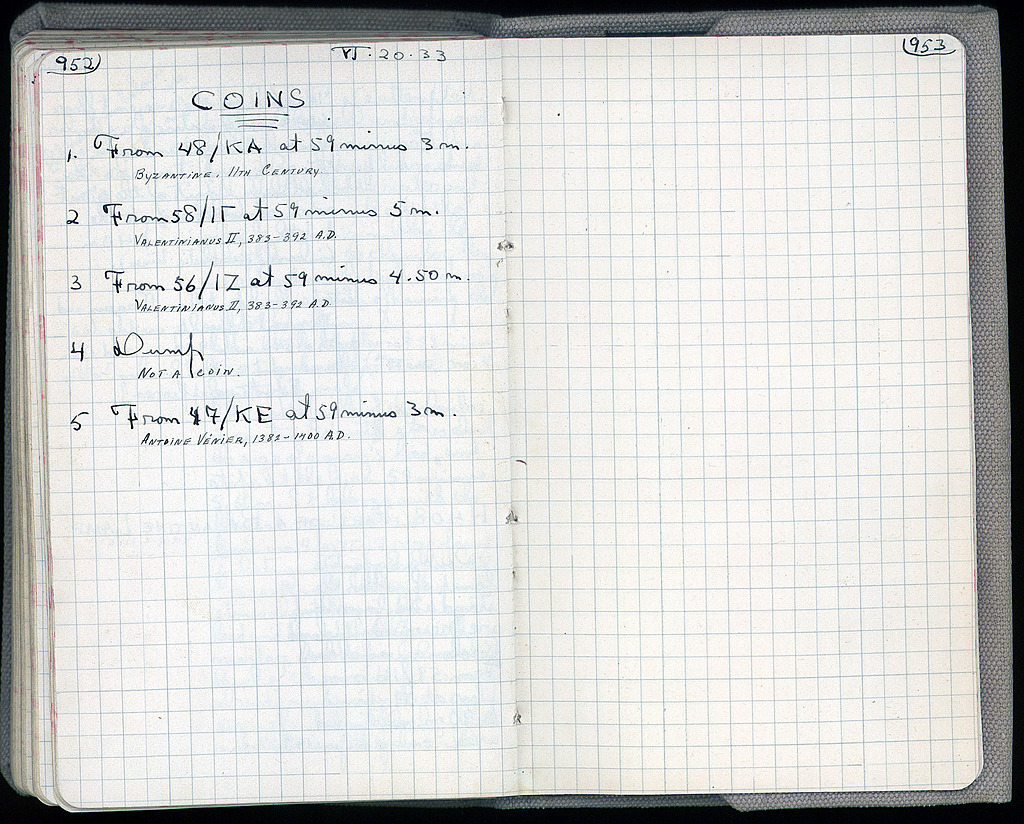 952
VI · 20 · 33
COINS
1. From 48/KA at 59 minus 3 m.
BYZANTINE, 11TH CENTURY.
2 From 58/IΓ at 59 minus 5 m.
VALENTINIANUS II, 383-392 A.D.
3 From 56/IZ at 59 minus 4.50 m.
VALENTINIANUS II, 383-392 A.D.
4 Dump
NOT A COIN.
5 From 47/KE at 59 minus 3 m.
ANTOINE VÉNIER, 1382-1400 A.D.
953